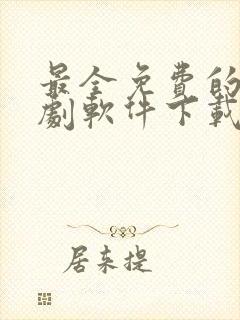 最全免费的
劇軟件下載
居来提